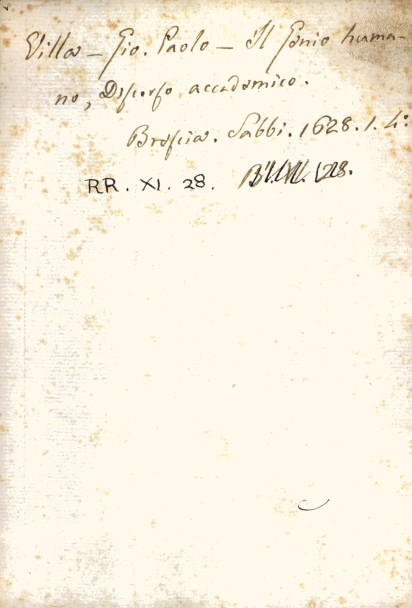 Villa - Gio. Paolo - Il Genio huma-
no, Discorso accademico.
Brescia. Sabbi. 1628. 1. 4.º
RR. XI. 28.